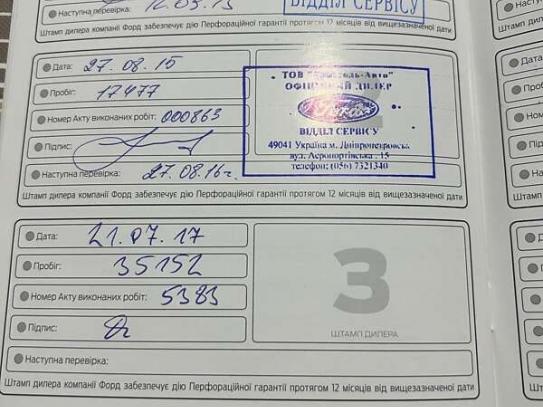 Наступна перевірка: 12.03.15
ВІДДІЛ СЕРВІСУ
Штамп дилера компанії Форд забезпечує дію Перфораційної гарантії протягом 12 місяців від вищезазначеної дати
Дата: 27.08.15
Пробіг: 17477
Номер Акту виконаних робіт: 000863
Підпис:
Наступна перевірка: 27.08.16г.
ТОВ
ОФІЦІЙНИЙ ДИЛЕР
Ford
ВІДДІЛ СЕРВІСУ
49041 Україна м. Дніпропетровськ
вул. Аеропортівська 15
телефон: (056) 7321340
Штамп дилера компанії Форд забезпечує дію Перфораційної гарантії протягом 12 місяців від вищезазначеної дати
Дата: 21.07.17
Пробіг: 35152
Номер Акту виконаних робіт: 5383
Підпис:
Наступна перевірка:
3
ШТАМП ДИЛЕРА
Штамп дилера компанії Форд забезпечує дію Перфораційної гарантії протягом 12 місяців від вищезазначеної дати